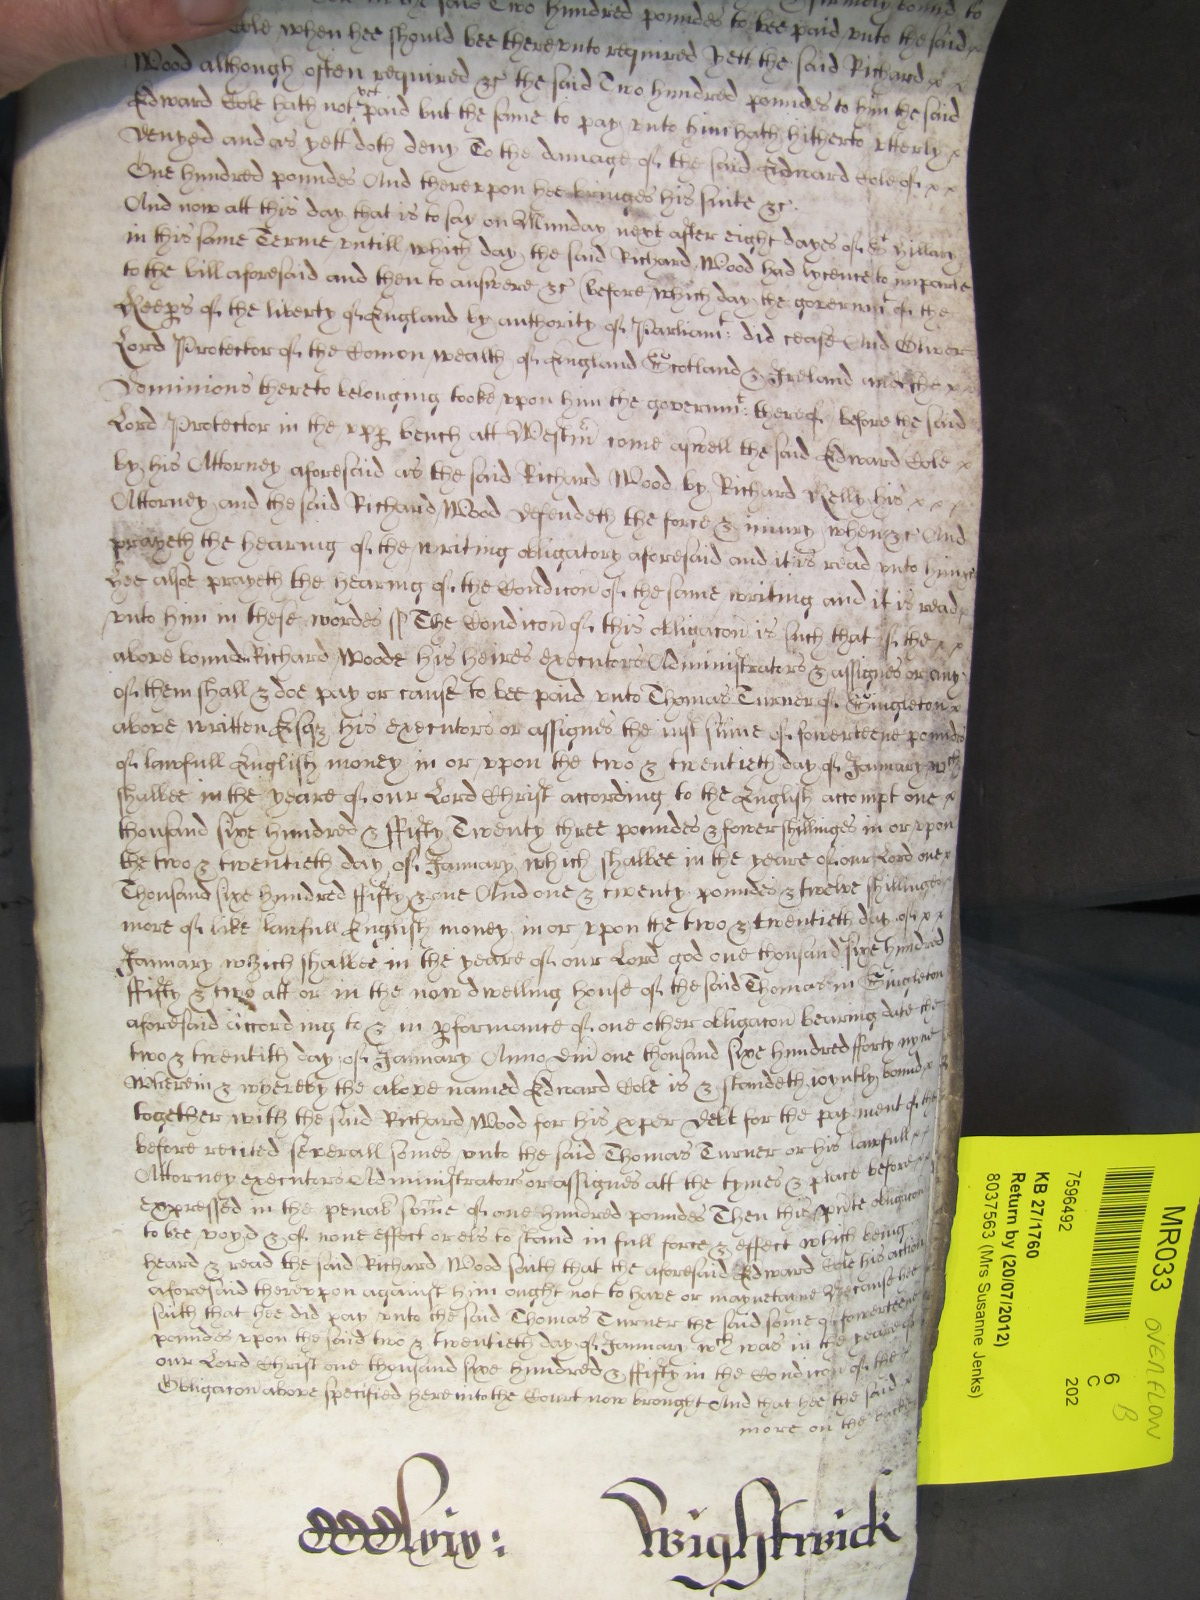 in the said Two hundred poundes to bee paid vnto the said x
Cole when hee should bee therevnto required yett the said Richard x x
Wood although often required &c the said Two hundred poundes to him the said
Edward Cole hath not yet paid but the same to pay vnto him hath hitherto vtterly x
denyed and as yett doth deny To the damage of the said Edward Cole of x x
One hundred poundes And therevpon hee bringes his suite &c.
And now att this day that is to say on Munday next after eight dayes of St Hillary
in this same Terme vntill which day the said Richard Wood had lycence to imparle
to the bill aforesaid and then to answere &c before which day the governmt of the
Keeps of the liberty of England by authority of Parliamt: did cease And Oliver
Lord Protector of the Comon wealth of England Scotland & Ireland and the x x
Dominions thereto belonging tooke vpon him the governmt: thereof before the said
Lord Protector in the vpp bench att Westm come aswell the said Edward Cole x
by his Attorney aforesaid as the said Richard Wood by Richard Kelly his x x x
Attorney and the said Richard Wood defendeth the force & iniury when &c And
prayeth the hearing of the writing obligatory aforesaid and it is read vnto him x
hee alsoe prayeth the hearing of the Condicon of the same writing and it is read x
vnto him in these wordes ss The Condicon of this obligacon is such that if the x x
above bounde Richard Woode his heires executors Administrators & assignes or any
of them shall & doe pay or cause to bee paid vnto Thomas Turner of Singleton x
above written Esqz his executors or assignes the iust sume of fowerteene poundes
of lawfull English money in or vpon the two & twentieth day of January wch
shalbee in the yeare of our Lord Christ according to the English accompt one x
thousand sixe hundred & ffifty Twenty three poundes & fower shillinges in or vpon
the two & twentieth day of January which shalbee in the yeare of our Lord one x
Thousand sixe hundred ffifty & one And one & twenty poundes & twelve shillinges
more of like lawfull English money in or vpon the two & twentieth day of x x
January which shalbee in the yeare of our Lord god one thousand sixe hundred
ffifty & two att or in the now dwelling house of the said Thomas in Singleton
aforesaid according to & in pformance of one other obligacon bearing date the
two & twentith day of January Anno Dni one thousand sixe hundred fforty nyne
wherein & whereby the above named Edward Cole is & standeth ioyntly bound x
together with the said Richard Wood for his pper debt for the payment of the
before recited severall somes vnto the said Thomas Turner or his lawfull x x
Attorney executors Administrators or assignes att the tymes & place before x
expressed in the penall some of one hundred poundes Then this pnte obligacon
to bee voyd & of none effect or els to stand in full force & effect which being
heard & read the said Richard Wood saith that the aforesaid Edward Cole his action
aforesaid therevpon against him ought not to have or mayneteine Because hee
saith that hee did pay vnto the said Thomas Turner the said some of fowerteene
poundes vpon the said two & twentieth day of January wch was in the yeare of
our Lord Christ one thousand sixe hundred & ffifty in the Condicon of the
Obligacon above specified here into the Court now brought And that hee the said
more on the backe
CCClxix:
Wightwick
MR033
OVERFLOW
6
C
B
202
7596492
KB 27/1760
Return by (20/07/2012)
8037563 (Mrs Susanne Jenks)